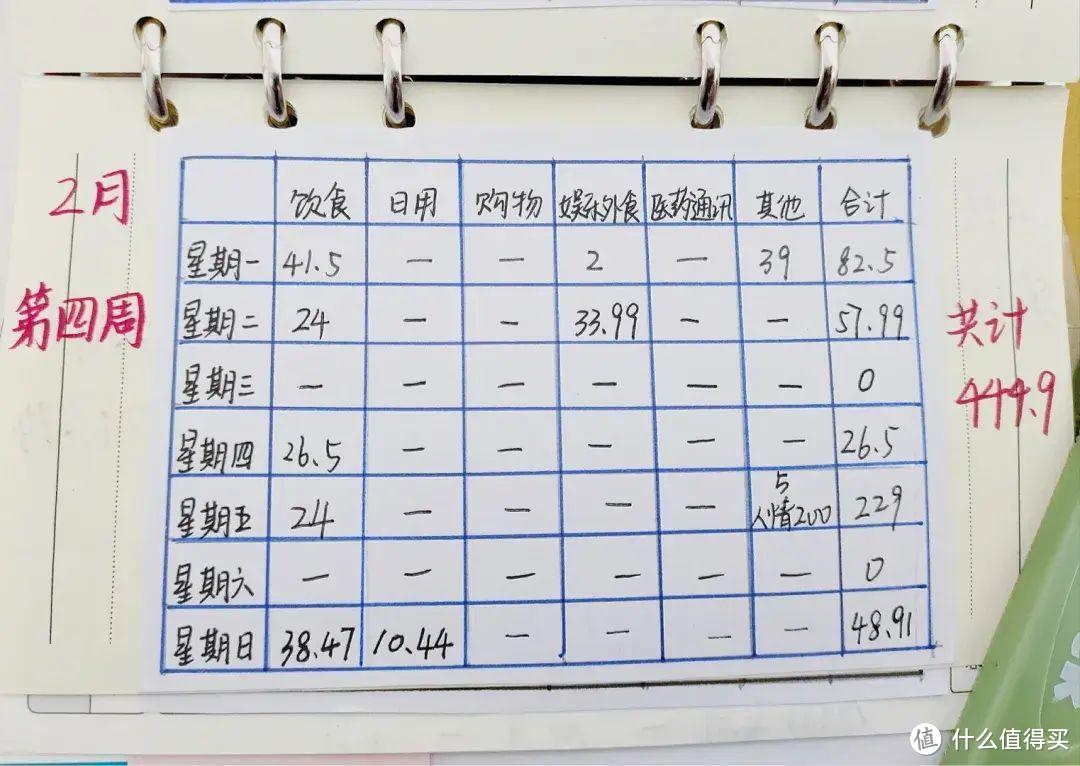 2月
第四周
饮食 日用 购物 娱乐外食 医药通讯 其他 合计
星期一 41.5 — — 2 — 39 82.5
星期二 24 — — 33.99 — — 57.99
星期三 — — — — — — 0
星期四 26.5 — — — — — 26.5
星期五 24 — — — — 5 人情200 229
星期六 — — — — — — 0
星期日 38.47 10.44 — — — — 48.91
共计
444.9
值 什么值得买